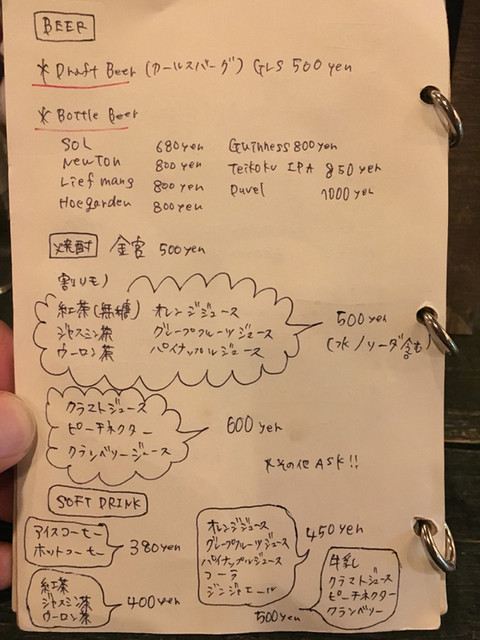 BEER
* Draft Beer (カールスバーグ) GLS 500 yen
* Bottle Beer
SOL 680 yen Guinness 800 yen
Newton 800 yen Teikoku IPA 850 yen
Liefmang 800 yen Duvel 1000 yen
Hoegarden 800 yen
焼酎 金宮 500 yen
割りモノ
紅茶(無糖) オレンジジュース
ジャスミン茶 グレープフルーツジュース 500 yen
ウーロン茶 パイナップルジュース (水/ソーダ含む)
クラストジュース
ピーチネクター 600 yen
クランベリージュース
*その他 ASK!!
SOFT DRINK
アイスコーヒー
ホットコーヒー 380 yen
オレンジジュース
グレープフルーツジュース 450 yen
パイナップルジュース
コーラ
ジンジャエール
紅茶
ジャスミン茶 400 yen
ウーロン茶
牛乳
クラストジュース
ピーチネクター
クランベリー
500 yen